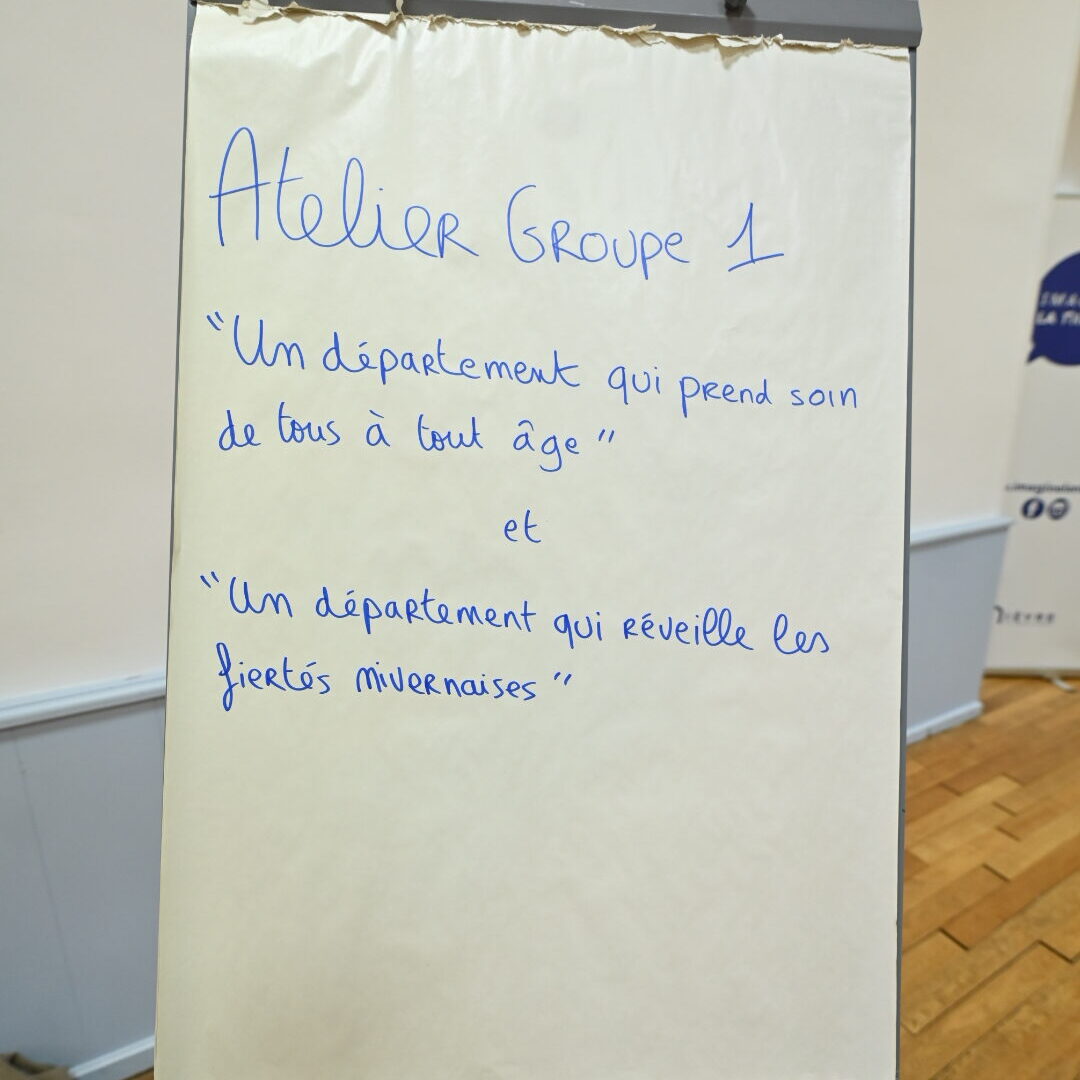 Atelier Groupe 1
"Un département qui prend soin
de tous à tout âge"
et
"Un département qui réveille les
fiertés nivernaises"